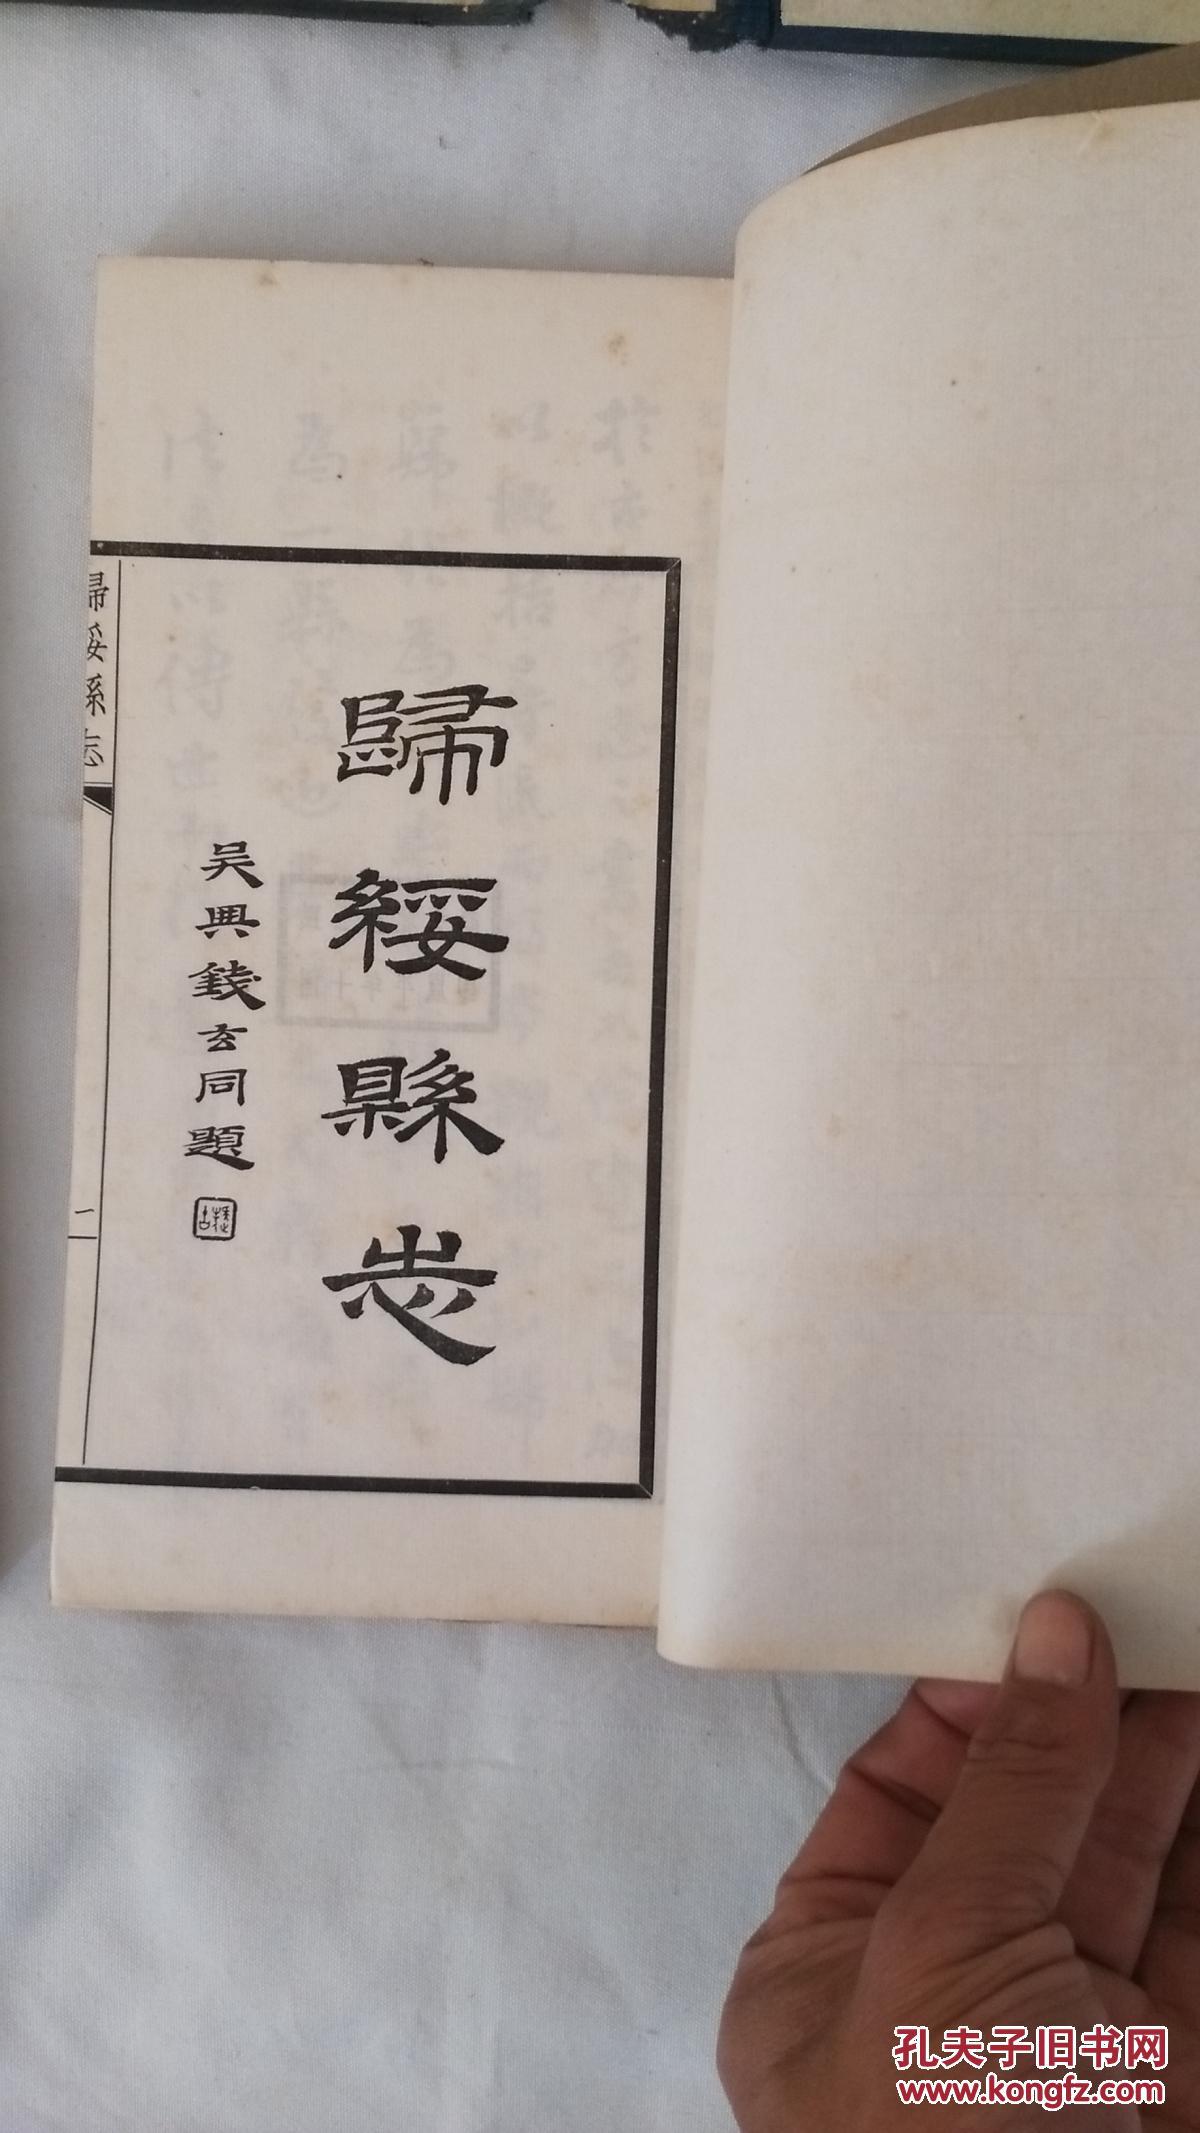 歸綏縣志
吴興錢玄同題
歸綏縣志
一
孔夫子旧书网
www.kongfz.com